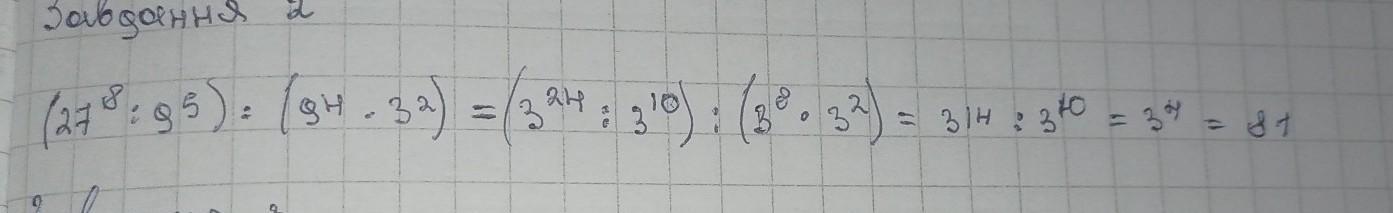 Завдання 2
(27⁸ : 9⁵) : (9⁴ · 3²) = (3²⁴ : 3¹⁰) : (3⁸ · 3²) = 3¹⁴ : 3¹⁰ = 3⁴ = 81